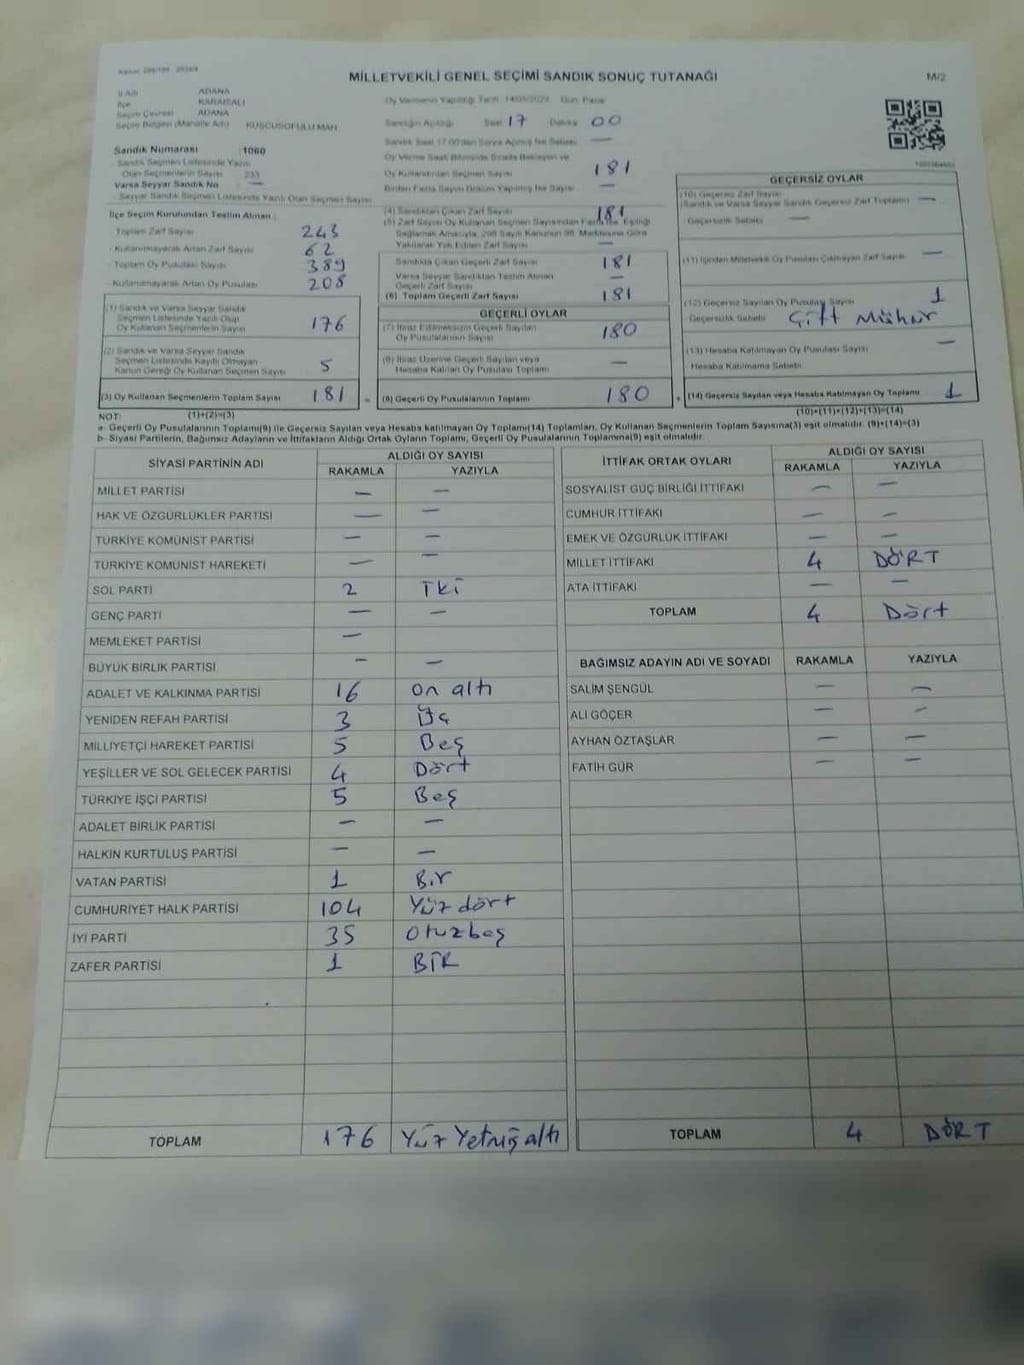 MİLLETVEKİLİ GENEL SEÇİMİ SANDIK SONUÇ TUTANAĞI
M/2
İl Adı ADANA
İlçe KARAİSALI
Seçim Çevresi ADANA
Seçim Bölgesi (Mahalle Adı) KUŞCUSOFULU MAH.
Sandık Numarası :1060
Sandık Seçmen Listesinde Yazılı
Olan Seçmenlerin Sayısı 233
Varsa Seyyar Sandık No —
Seyyar Sandık Seçmen Listesinde Yazılı Olan Seçmen Sayısı
İlçe Seçim Kurulundan Teslim Alınan
Toplam Zarf Sayısı 243
Kullanılmayarak Artan Zarf Sayısı 62
Toplam Oy Pusulası Sayısı 389
Kullanılmayarak Artan Oy Pusulası 208
(1) Sandık ve Varsa Seyyar Sandık
Seçmen Listesinde Yazılı Olup
Oy Kullanan Seçmenlerin Sayısı 176
(2) Sandık ve Varsa Seyyar Sandık
Seçmen Listesinde Kaydı Olmayan
Kanun Gereği Oy Kullanan Seçmen Sayısı 5
(3) Oy Kullanan Seçmenlerin Toplam Sayısı 181
Oy Vermenin Yapıldığı Tarih 14/05/2023 Gün: Pazar
Sandığın Açıldığı Saat 17 Dakika 00
Sandık Saat 17:00'den Sonra Açılmış İse Sebebi —
Oy Verme Saati Bitiminde Sırada Bekleyen ve
Oy Kullandırılan Seçmen Sayısı 181
Birden Fazla Sayım Döküm Yapılmış İse Sayısı —
(4) Sandıktan Çıkan Zarf Sayısı 181
(5) Zarf Sayısı Oy Kullanan Seçmen Sayısından Fazla ise, Eşitliği
Sağlamak Amacıyla, 298 Sayılı Kanunun 98. Maddesine Göre
Yakılarak Yok Edilen Zarf Sayısı —
Sandıkta Çıkan Geçerli Zarf Sayısı 181
Varsa Seyyar Sandıktan Teslim Alınan
Geçerli Zarf Sayısı —
(6) Toplam Geçerli Zarf Sayısı 181
GEÇERLİ OYLAR
(7) İtiraz Edilmeksizin Geçerli Sayılan
Oy Pusulalarının Sayısı 180
(8) İtiraz Üzerine Geçerli Sayılan veya
Hesaba Katılan Oy Pusulası Toplamı —
(9) Geçerli Oy Pusulalarının Toplamı 180
GEÇERSİZ OYLAR
(10) Geçersiz Zarf Sayısı
(Sandık ve Varsa Seyyar Sandık Geçersiz Zarf Toplamı) —
Geçersizlik Sebebi —
(11) İçinden Milletvekili Oy Pusulası Çıkmayan Zarf Sayısı —
(12) Geçersiz Sayılan Oy Pusulası Sayısı 1
Geçersizlik Sebebi Çift Mühür
(13) Hesaba Katılmayan Oy Pusulası Sayısı —
Hesaba Katılmama Sebebi
(14) Geçersiz Sayılan veya Hesaba Katılmayan Oy Toplamı 1
NOT: (1)+(2)=(3) (10)+(11)+(12)+(13)=(14)
a- Geçerli Oy Pusulalarının Toplamı(9) ile Geçersiz Sayılan veya Hesaba katılmayan Oy Toplamı(14) Toplamları, Oy Kullanan Seçmenlerin Toplam Sayısına(3) eşit olmalıdır. (9)+(14)=(3)
b- Siyasi Partilerin, Bağımsız Adayların ve İttifakların Aldığı Ortak Oyların Toplamı, Geçerli Oy Pusulalarının Toplamına(9) eşit olmalıdır.
SİYASİ PARTİNİN ADI ALDIĞI OY SAYISI
RAKAMLA YAZIYLA
MİLLET PARTİSİ — —
HAK VE ÖZGÜRLÜKLER PARTİSİ — —
TÜRKİYE KOMÜNİST PARTİSİ — —
TÜRKİYE KOMÜNİST HAREKETİ — —
SOL PARTİ 2 İki
GENÇ PARTİ — —
MEMLEKET PARTİSİ —
BÜYÜK BİRLİK PARTİSİ — —
ADALET VE KALKINMA PARTİSİ 16 on altı
YENİDEN REFAH PARTİSİ 3 Üç
MİLLİYETÇİ HAREKET PARTİSİ 5 Beş
YEŞİLLER VE SOL GELECEK PARTİSİ 4 Dört
TÜRKİYE İŞÇİ PARTİSİ 5 Beş
ADALET BİRLİK PARTİSİ — —
HALKIN KURTULUŞ PARTİSİ — —
VATAN PARTİSİ 1 Bir
CUMHURİYET HALK PARTİSİ 104 Yüz dört
İYİ PARTİ 35 Otuzbeş
ZAFER PARTİSİ 1 BİR
TOPLAM 176 Yüz Yetmiş altı
İTTİFAK ORTAK OYLARI ALDIĞI OY SAYISI
RAKAMLA YAZIYLA
SOSYALİST GÜÇ BİRLİĞİ İTTİFAKI — —
CUMHUR İTTİFAKI — —
EMEK VE ÖZGÜRLÜK İTTİFAKI — —
MİLLET İTTİFAKI 4 DÖRT
ATA İTTİFAKI — —
TOPLAM 4 Dört
BAĞIMSIZ ADAYIN ADI VE SOYADI RAKAMLA YAZIYLA
SALİM ŞENGÜL — —
ALİ GÖÇER — —
AYHAN ÖZTAŞLAR — —
FATİH GÜR — —
TOPLAM 4 DÖRT